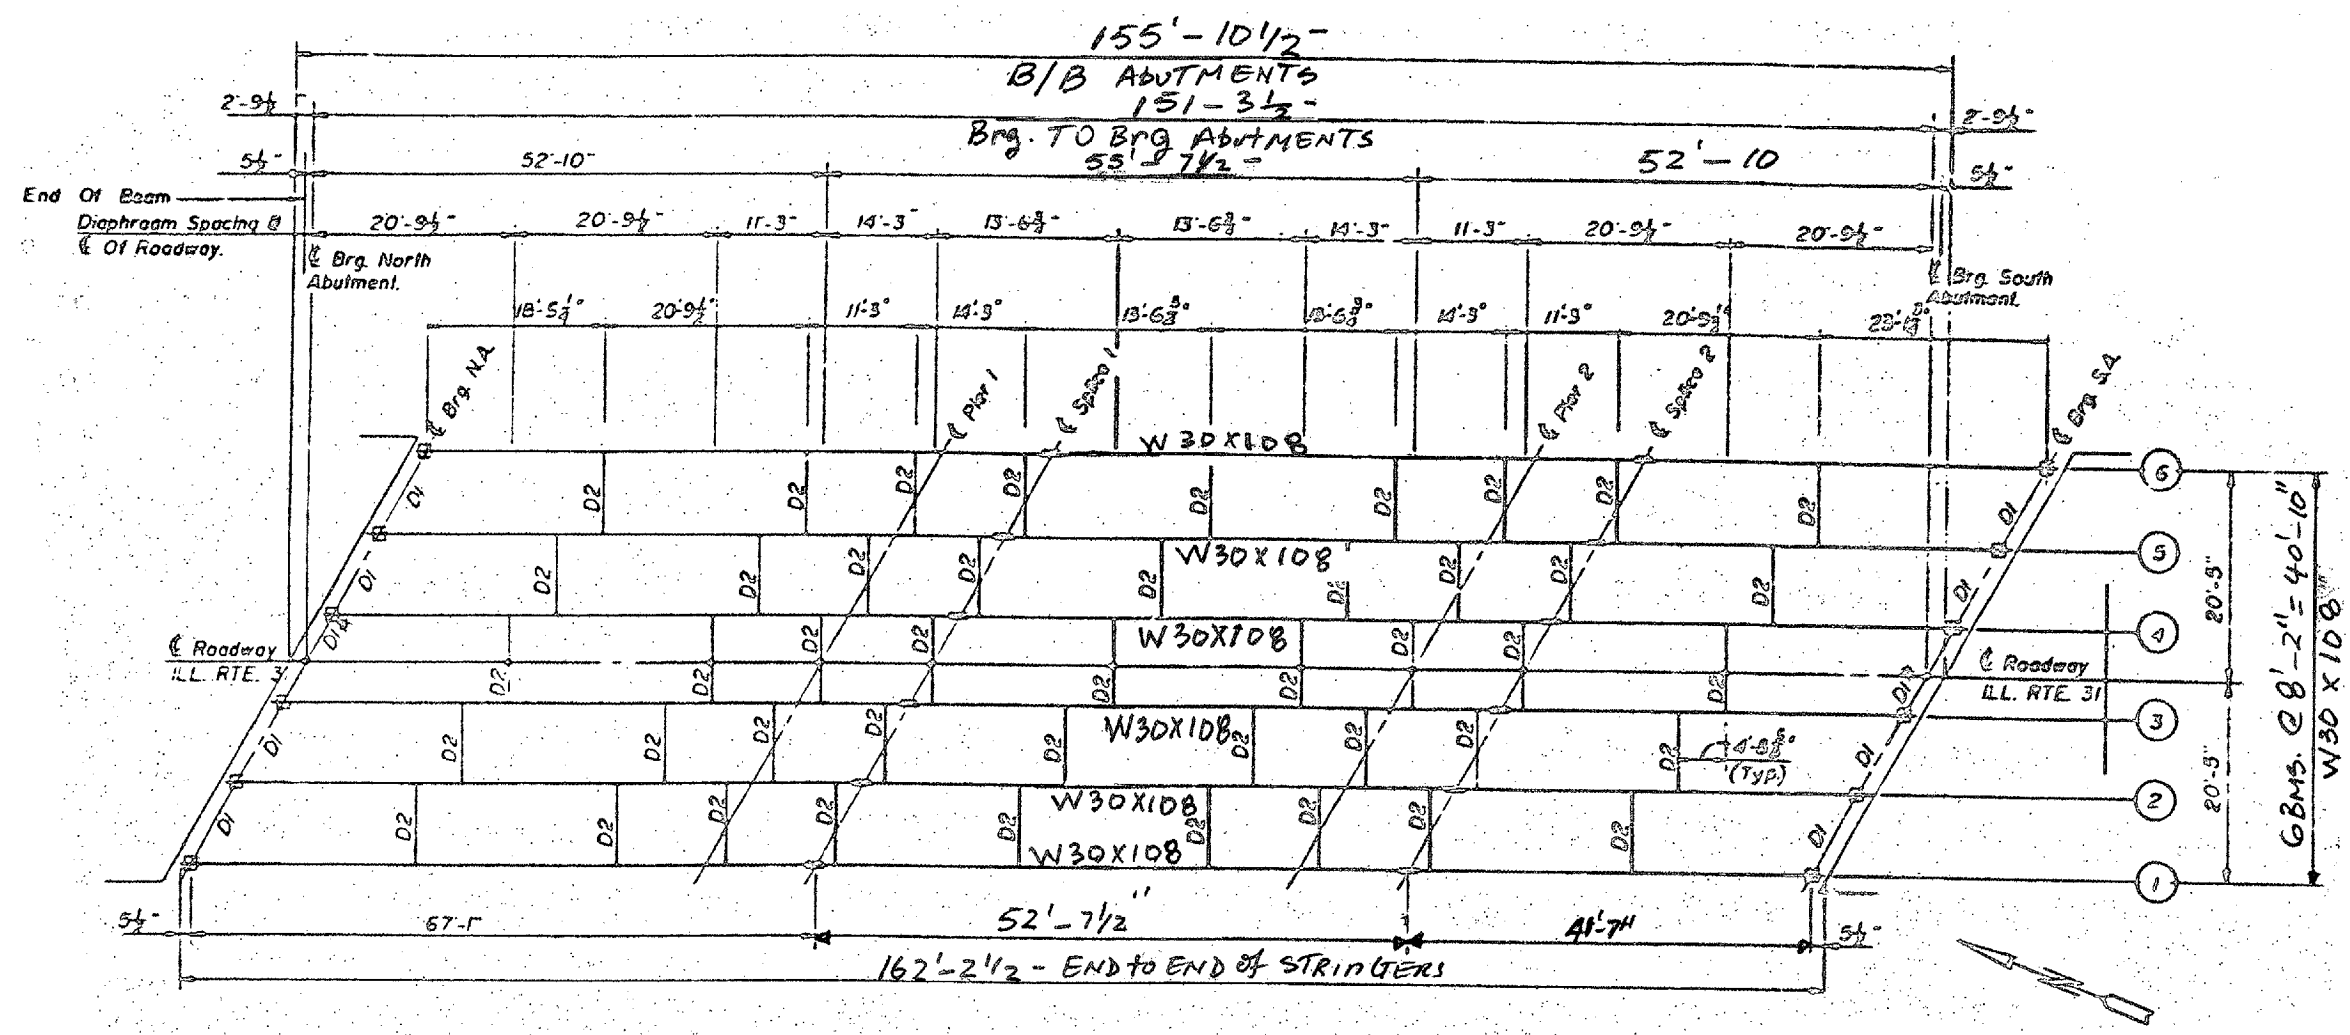 155'-10 1/2"
B/B ABUTMENTS
2'-9½"
151-3½"
2'-9½"
Brg. TO Brg AbutMENTS
5½"
52'-10"
55'-7½"
52'-10
5½"
End Of Beam
Diaphragm Spacing @
℄ Of Roadway.
20'-9½"
20'-9½"
11'-3"
14'-3"
13'-6¾"
13'-6¾"
14'-3"
11'-3"
20'-9½"
20'-9½"
℄ Brg. North
Abutment.
℄ Brg. South
Abutment.
18'-5¼"
20'-9½"
11'-3"
14'-3"
14'-3"
11'-3"
℄ Brg. N.A.
℄ Pier 1
℄ Splice 1
℄ Pier 2
℄ Splice 2
℄ Brg. S.A.
W30X108
D1
D2
D2
D2
D2
D2
D2
D2
D2
D2
D1
6
W30X108
D1
D2
D2
D2
D2
D2
D2
D2
D2
D2
D1
5
W30X108
D1
D2
D2
D2
D2
D2
D2
D2
D2
D2
D1
4
℄ Roadway
ILL. RTE. 3
℄ Roadway
ILL. RTE. 31
W30X108
D1
D2
D2
D2
D2
D2
D2
D2
D2
D2
D1
3
(Typ.)
W30X108
D1
D2
D2
D2
D2
D2
D2
D2
D2
D2
D1
2
W30X108
1
20'-5"
20'-5"
6 BMS. @ 8'-2" = 40'-10"
W30 X 108
5½"
67'-1"
52'-7½"
41'-7"
5½"
162'-2½ - END to END of STRINGERS
N